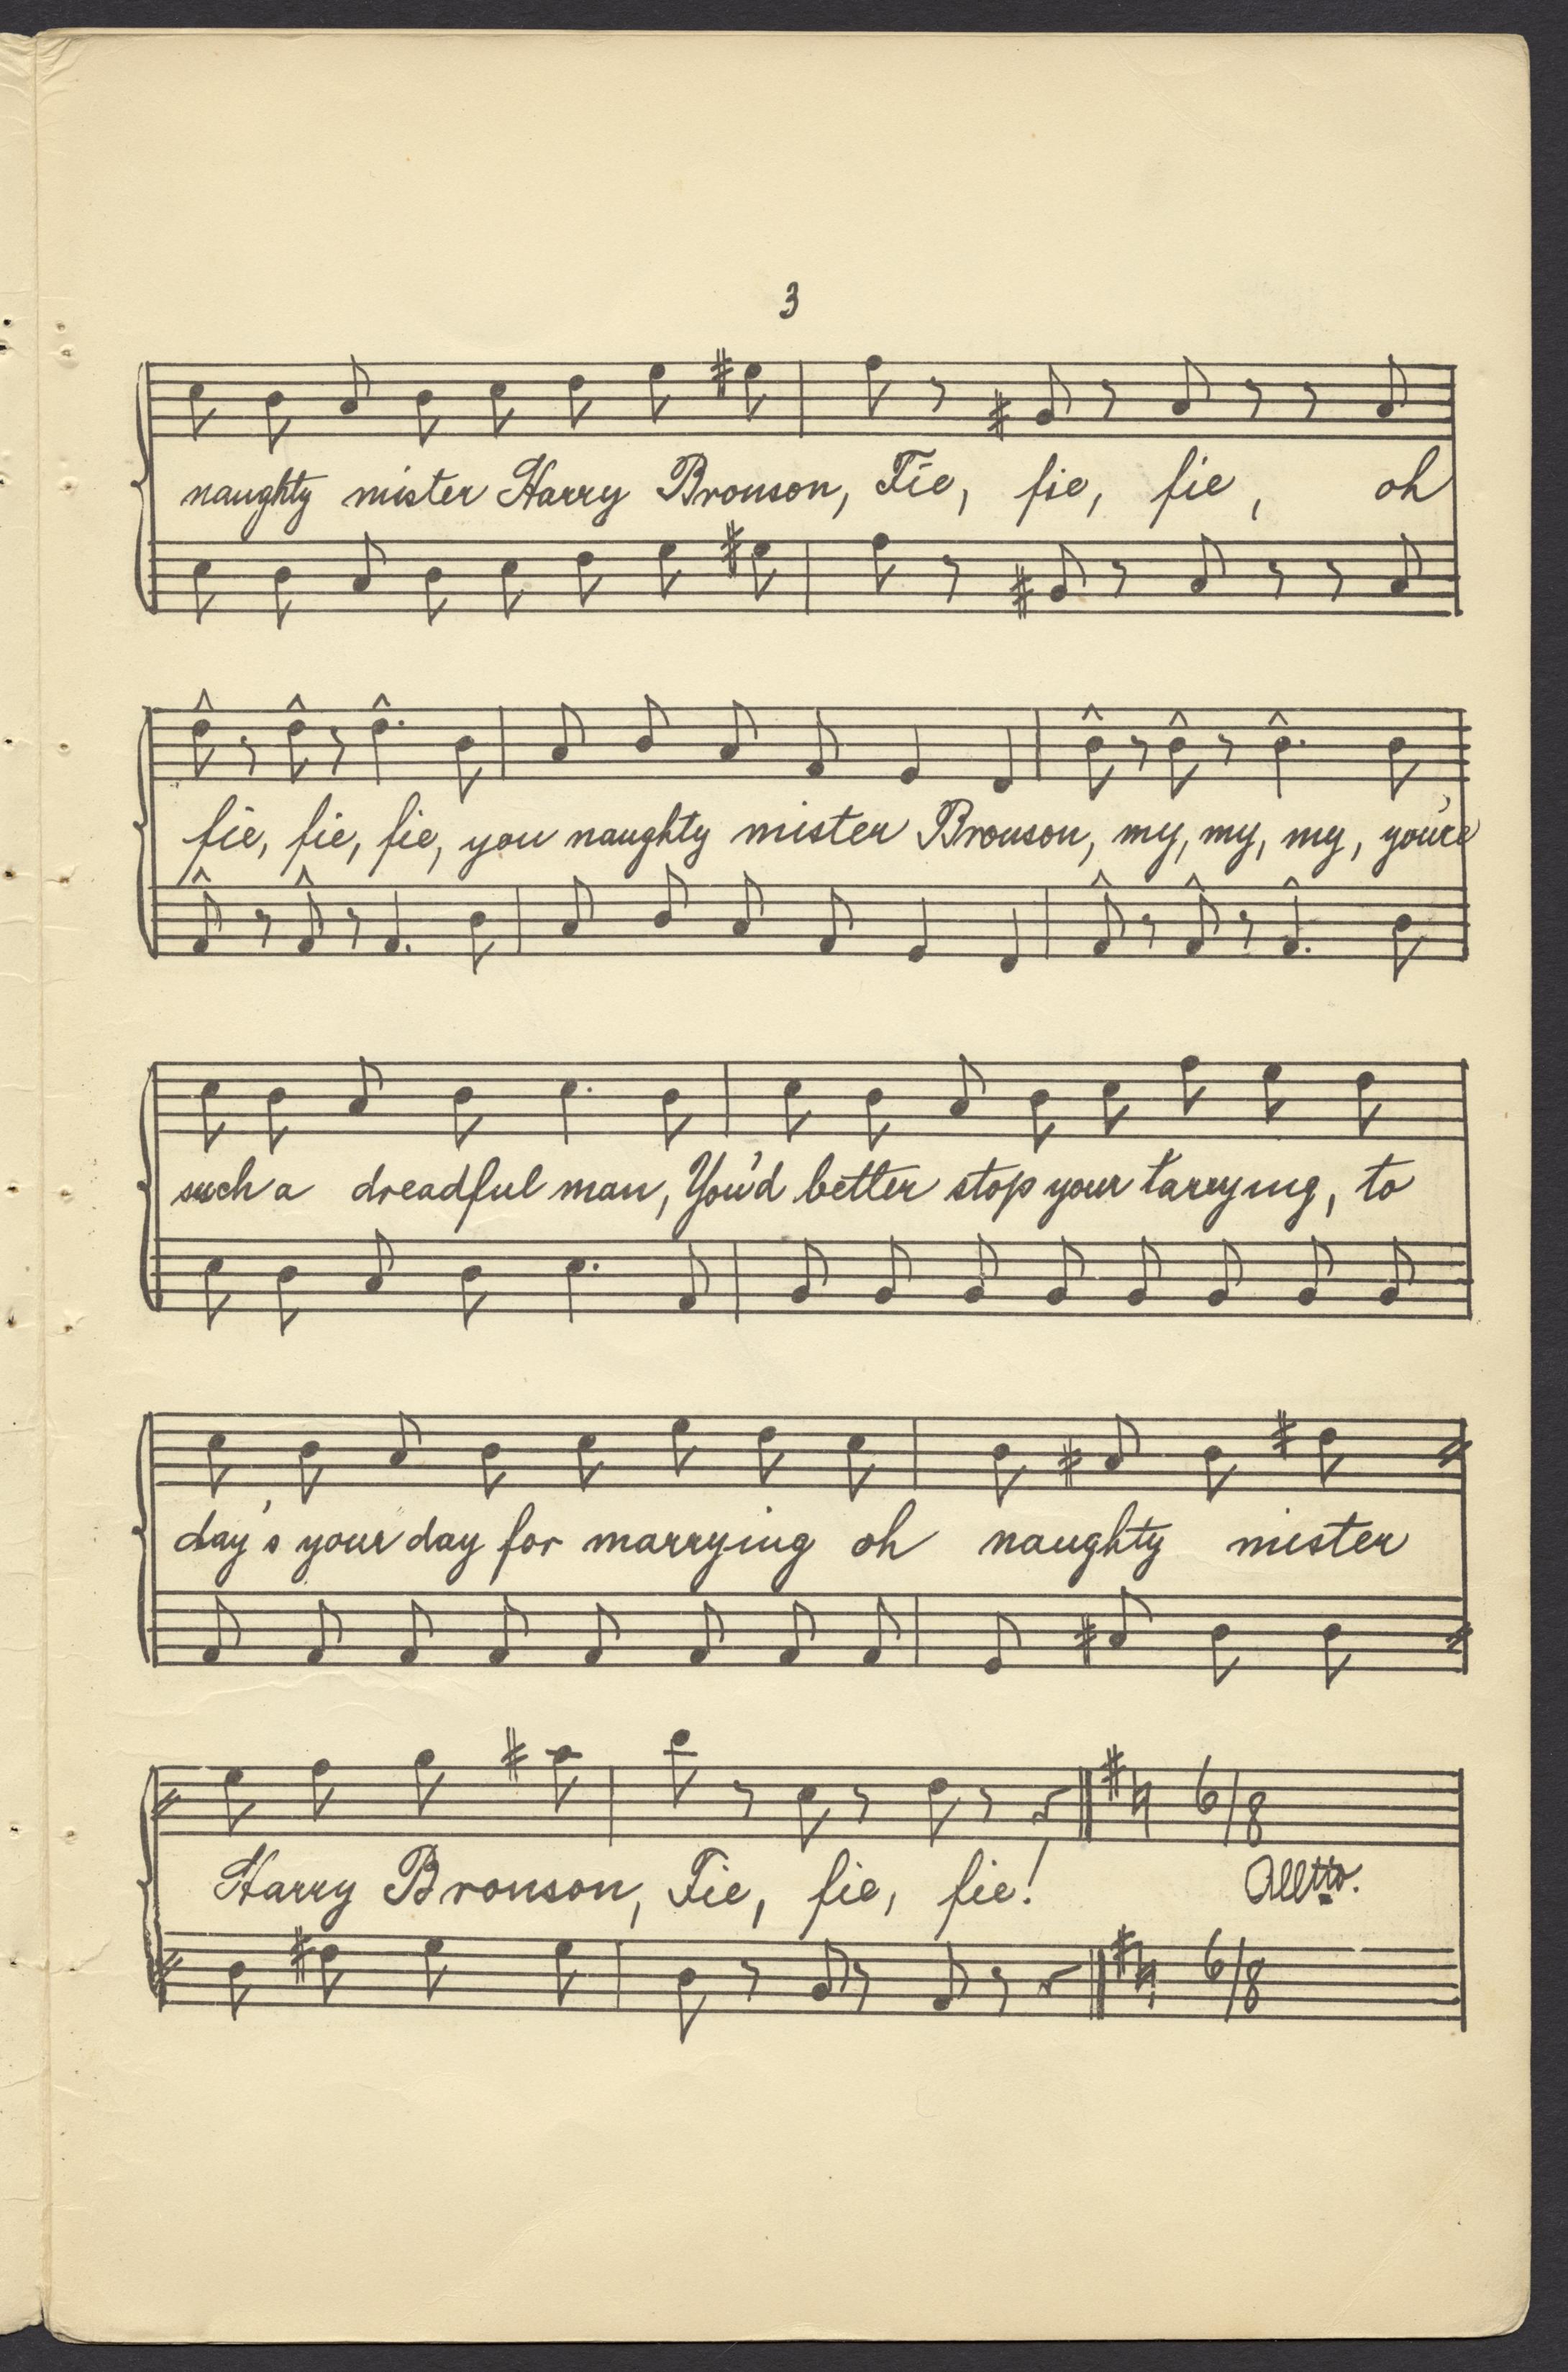 3
naughty mister Harry Bronson, Fie, fie, fie, oh
fie, fie, fie, you naughty mister Bronson, my, my, my, you're
such a dreadful man, You'd better stop your tarrying, to
day's your day for marrying oh naughty mister
6/8
Harry Bronson, Fie, fie, fie!
Alltto.
6/8